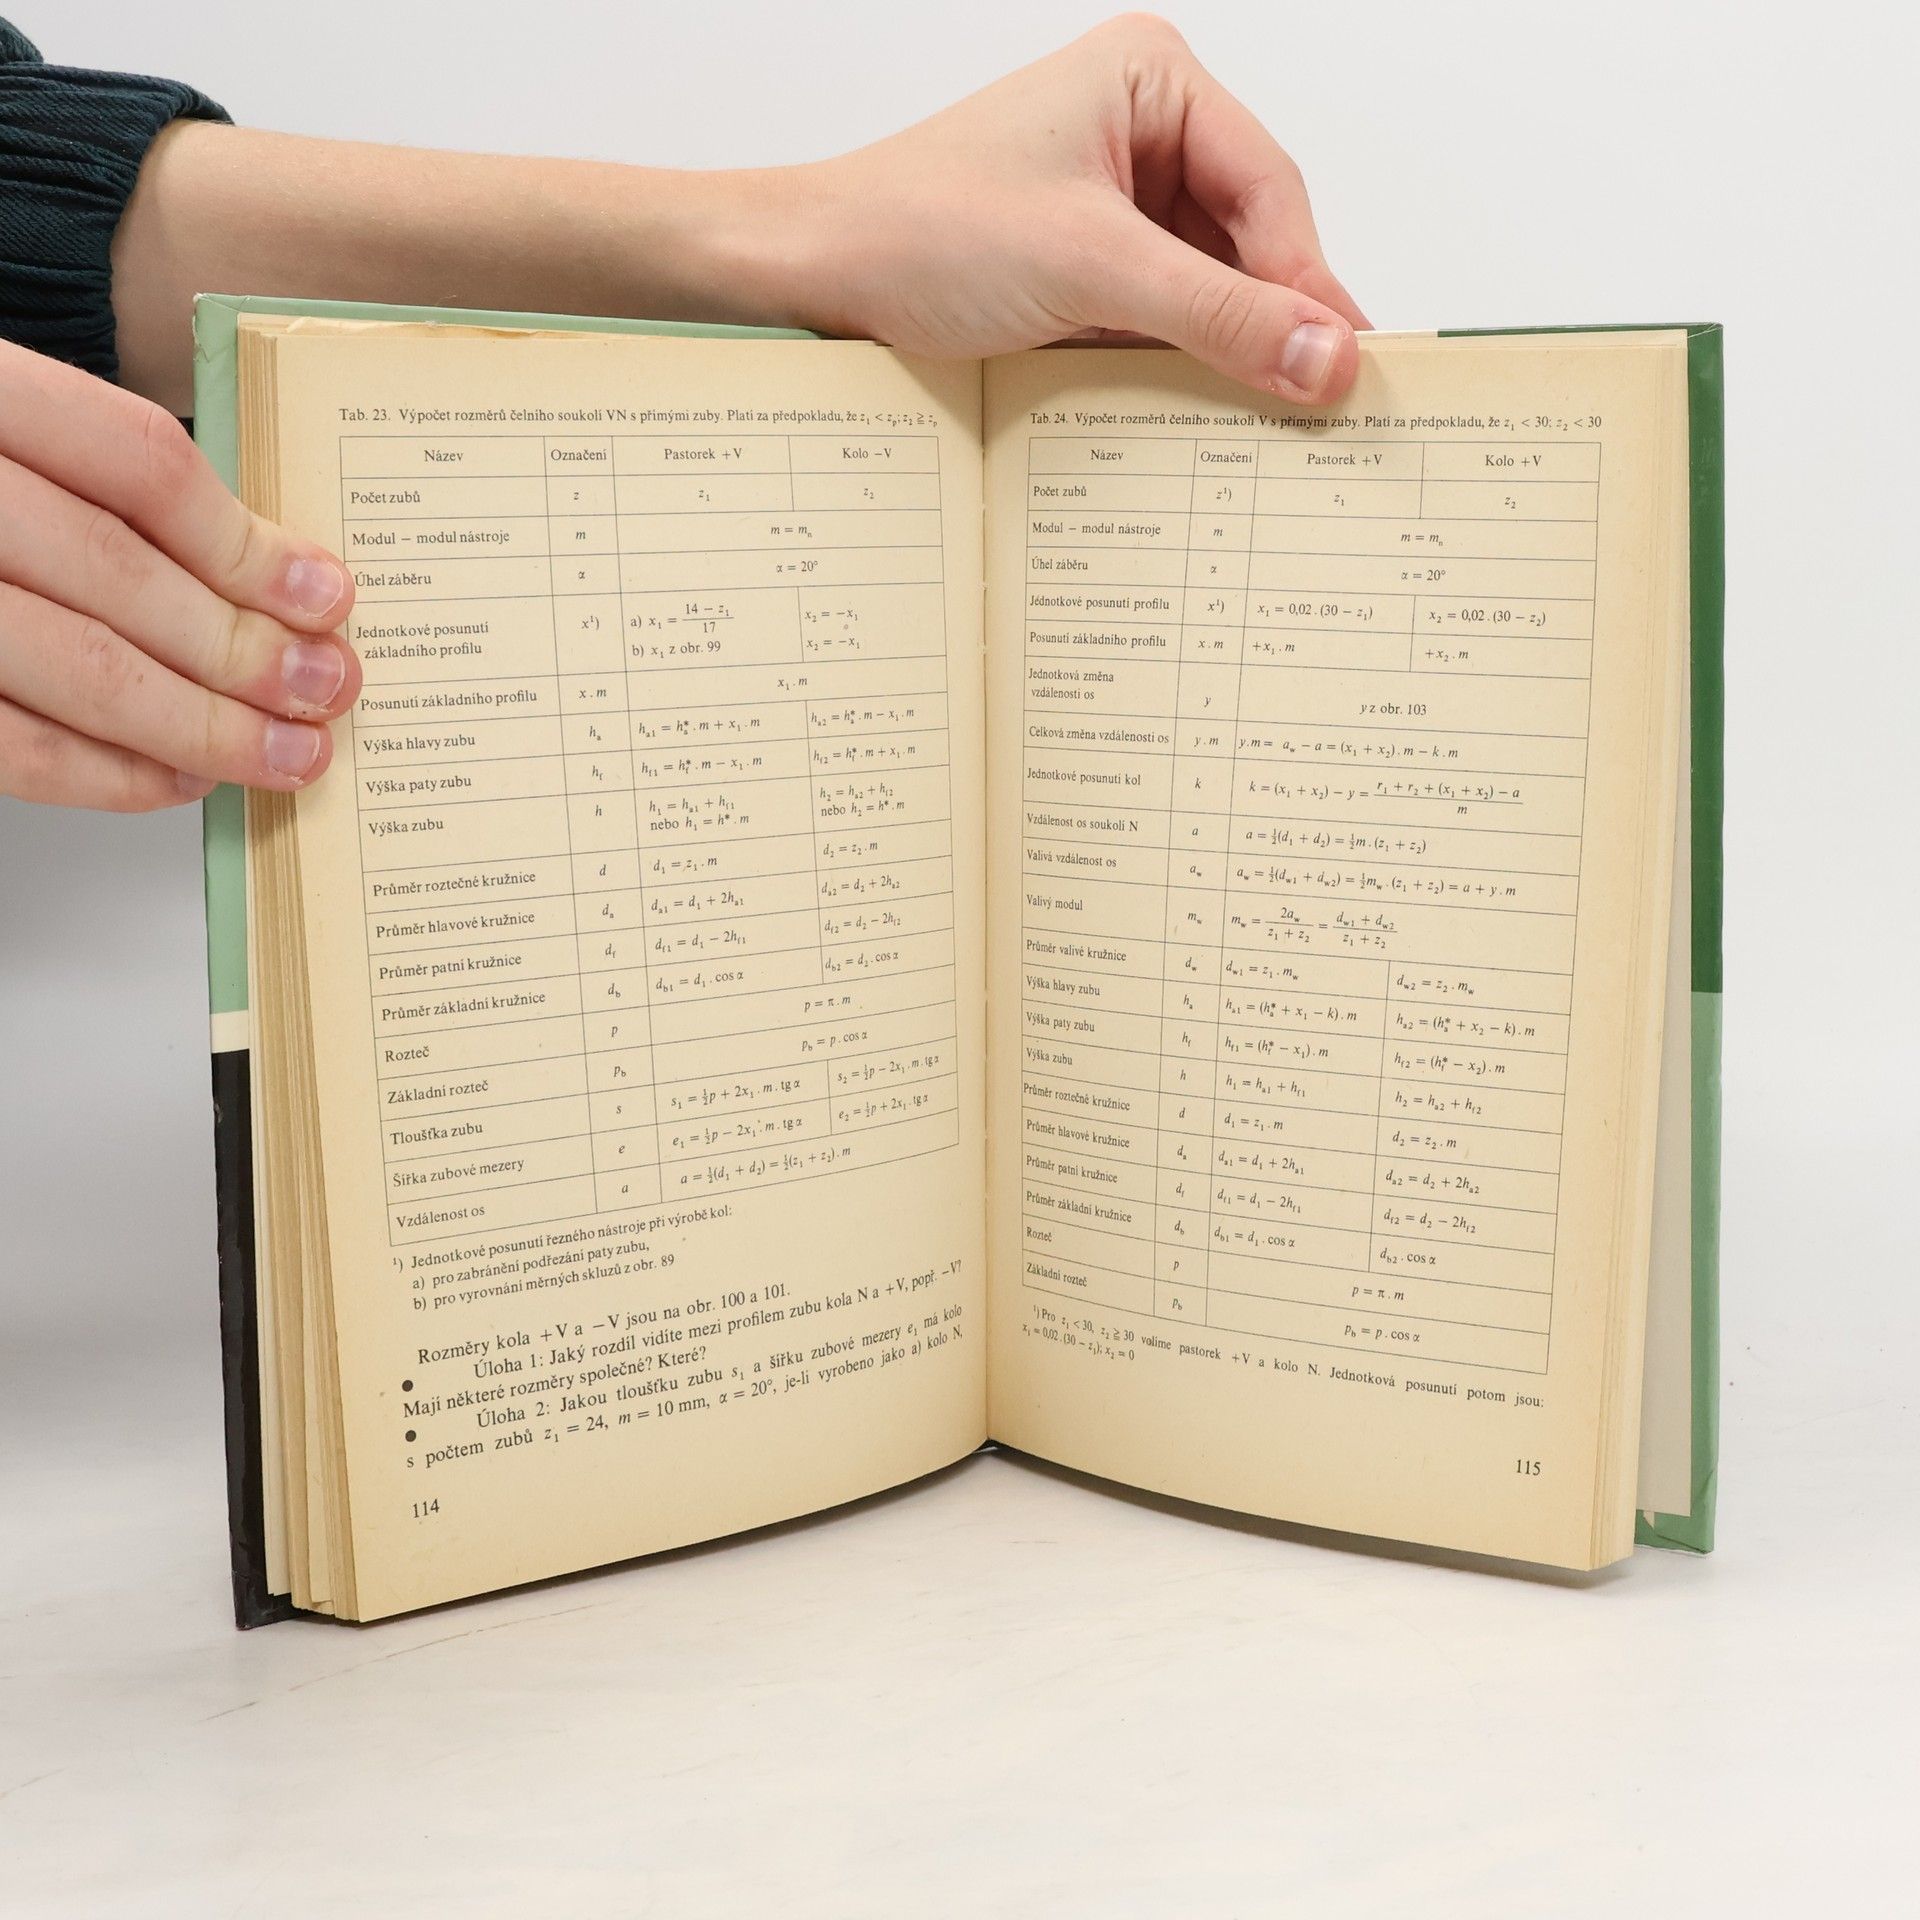 Tab. 23. Výpočet rozměrů čelního soukolí VN s přímými zuby. Platí za předpokladu, že z₁ < zₚ; z₂ ≧ zₚ
Název Označení Pastorek +V Kolo −V
Počet zubů z z₁ z₂
Modul − modul nástroje m m = mₙ
Úhel záběru α α = 20°
Jednotkové posunutí základního profilu x¹) a) x₁ = (14 − z₁)/17 x₂ = −x₁
b) x₁ z obr. 99 x₂ = −x₁
Posunutí základního profilu x . m x₁ . m
Výška hlavy zubu hₐ hₐ₁ = hₐ* . m + x₁ . m hₐ₂ = hₐ* . m − x₁ . m
Výška paty zubu h_f h_f1 = h_f* . m − x₁ . m h_f2 = h_f* . m + x₁ . m
Výška zubu h h₁ = hₐ₁ + h_f1 h₂ = hₐ₂ + h_f2
nebo h₁ = h* . m nebo h₂ = h* . m
Průměr roztečné kružnice d d₁ = z₁ . m d₂ = z₂ . m
Průměr hlavové kružnice dₐ dₐ₁ = d₁ + 2hₐ₁ dₐ₂ = d₂ + 2hₐ₂
Průměr patní kružnice d_f d_f1 = d₁ − 2h_f1 d_f2 = d₂ − 2h_f2
Průměr základní kružnice d_b d_b1 = d₁ . cos α d_b2 = d₂ . cos α
Rozteč p p = π . m
Základní rozteč p_b p_b = p . cos α
Tloušťka zubu s s₁ = ½p + 2x₁ . m . tg α s₂ = ½p − 2x₁ . m . tg α
Šířka zubové mezery e e₁ = ½p − 2x₁ . m . tg α e₂ = ½p + 2x₁ . tg α
Vzdálenost os a a = ½(d₁ + d₂) = ½(z₁ + z₂) . m
¹) Jednotkové posunutí řezného nástroje při výrobě kol:
a) pro zabránění podřezání paty zubu,
b) pro vyrovnání měrných skluzů z obr. 89
Rozměry kola +V a −V jsou na obr. 100 a 101.
● Úloha 1: Jaký rozdíl vidíte mezi profilem zubu kola N a +V, popř. −V?
Mají některé rozměry společné? Které?
● Úloha 2: Jakou tloušťku zubu s₁ a šířku zubové mezery e₁ má kolo
s počtem zubů z₁ = 24, m = 10 mm, α = 20°, je-li vyrobeno jako a) kolo N,
114
Tab. 24. Výpočet rozměrů čelního soukolí V s přímými zuby. Platí za předpokladu, že z₁ < 30; z₂ < 30
Název Označení Pastorek +V Kolo +V
Počet zubů z¹) z₁ z₂
Modul − modul nástroje m m = mₙ
Úhel záběru α α = 20°
Jednotkové posunutí profilu x¹) x₁ = 0,02 . (30 − z₁) x₂ = 0,02 . (30 − z₂)
Posunutí základního profilu x . m +x₁ . m +x₂ . m
Jednotková změna
vzdálenosti os y y z obr. 103
Celková změna vzdálenosti os y . m y.m = a_w − a = (x₁ + x₂) . m − k . m
Jednotkové posunutí kol k k = (x₁ + x₂) − y = (r₁ + r₂ + (x₁ + x₂) − a)/m
Vzdálenost os soukolí N a a = ½(d₁ + d₂) = ½m . (z₁ + z₂)
Valivá vzdálenost os a_w a_w = ½(d_w1 + d_w2) = ½m_w . (z₁ + z₂) = a + y . m
Valivý modul m_w m_w = 2a_w/(z₁ + z₂) = (d_w1 + d_w2)/(z₁ + z₂)
Průměr valivé kružnice d_w d_w1 = z₁ . m_w d_w2 = z₂ . m_w
Výška hlavy zubu hₐ hₐ₁ = (hₐ* + x₁ − k) . m hₐ₂ = (hₐ* + x₂ − k) . m
Výška paty zubu h_f h_f1 = (h_f* − x₁) . m h_f2 = (h_f* − x₂) . m
Výška zubu h h₁ = hₐ₁ + h_f1 h₂ = hₐ₂ + h_f2
Průměr roztečné kružnice d d₁ = z₁ . m d₂ = z₂ . m
Průměr hlavové kružnice dₐ dₐ₁ = d₁ + 2hₐ₁ dₐ₂ = d₂ + 2hₐ₂
Průměr patní kružnice d_f d_f1 = d₁ − 2h_f1 d_f2 = d₂ − 2h_f2
Průměr základní kružnice d_b d_b1 = d₁ . cos α d_b2 . cos α
Rozteč p p = π . m
Základní rozteč p_b p_b = p . cos α
¹) Pro z₁ < 30, z₂ ≧ 30 volíme pastorek +V a kolo N. Jednotková posunutí potom jsou:
x₁ = 0,02 . (30 − z₁); x₂ = 0
115